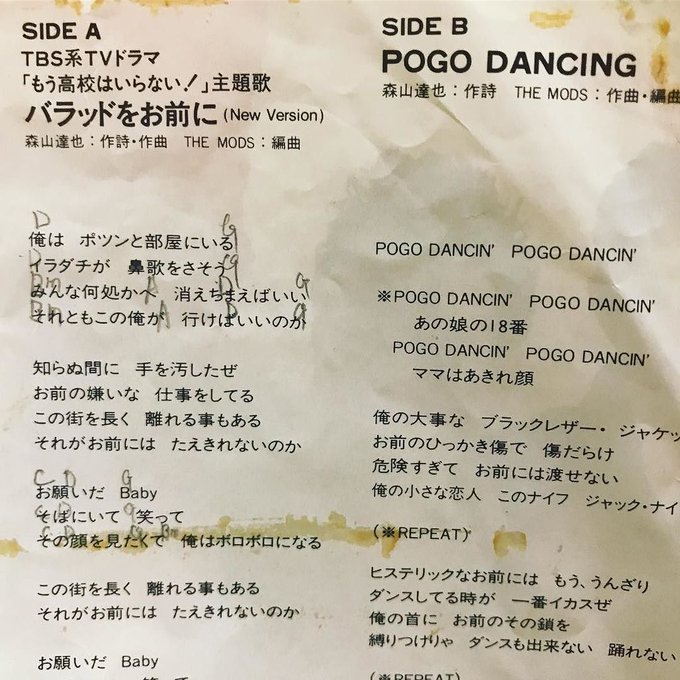 SIDE A
TBS系TVドラマ
「もう高校はいらない!」主題歌
バラッドをお前に (New Version)
森山達也:作詩・作曲 THE MODS:編曲
D G
俺は ポツンと部屋にいる
D G
イラダチが 鼻歌をさそう
Bm A D G
みんな何処かへ 消えちまえばいい
Bm A D G
それともこの俺が 行けばいいのか
知らぬ間に 手を汚したぜ
お前の嫌いな 仕事をしてる
この街を長く 離れる事もある
それがお前には たえきれないのか
C D G
お願いだ Baby
C D G
そばにいて 笑って
C D G Bm
その顔を見たくて 俺はボロボロになる
この街を長く 離れる事もある
それがお前には たえきれないのか
お願いだ Baby
笑って
SIDE B
POGO DANCING
森山達也:作詩 THE MODS:作曲・編曲
POGO DANCIN' POGO DANCIN'
※POGO DANCIN' POGO DANCIN'
あの娘の18番
POGO DANCIN' POGO DANCIN'
ママはあきれ顔
俺の大事な ブラックレザー・ジャケッ
お前のひっかき傷で 傷だらけ
危険すぎて お前には渡せない
俺の小さな恋人 このナイフ ジャック・ナイ
(※REPEAT)
ヒステリックなお前には もう、うんざり
ダンスしてる時が 一番イカスぜ
俺の首に お前のその鎖を
縛りつけりゃ ダンスも出来ない 踊れない
(※REPEAT)